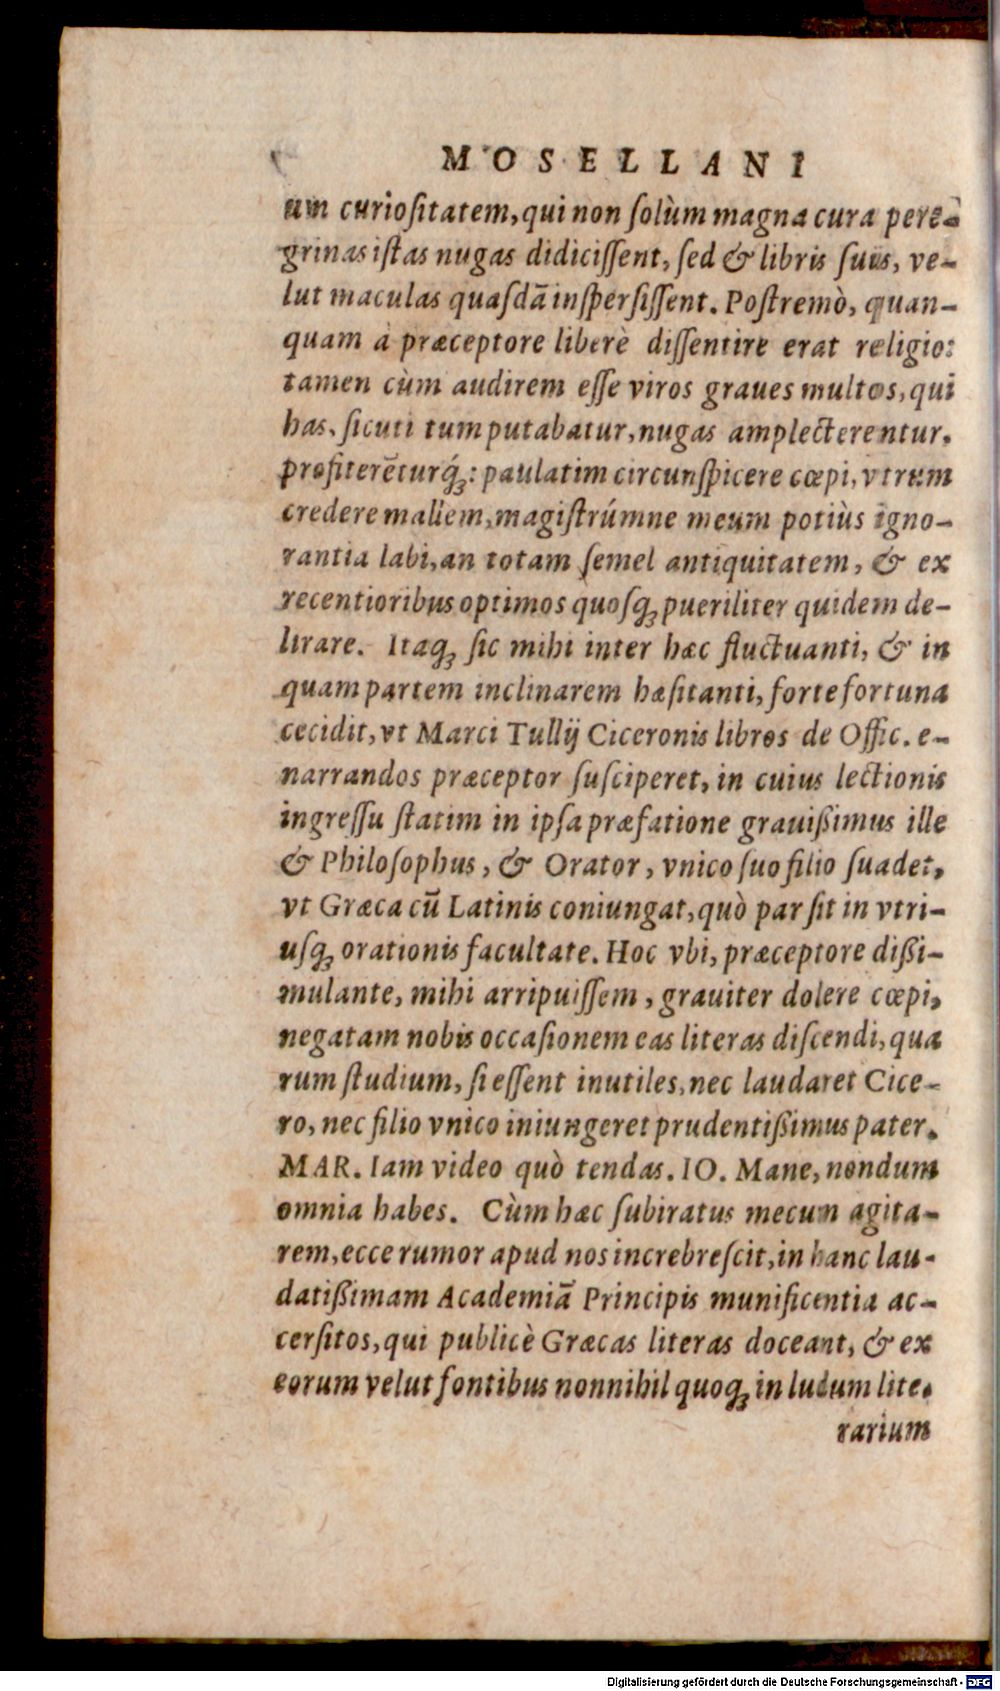 MOSELLANI
um curioſitatem, qui non ſolùm magna cura pere-
grinas iſtas nugas didiciſſent, ſed & libris ſuis, ve-
lut maculas quaſdā inſperſiſſent. Poſtremò, quan-
quam à præceptore liberè diſſentire erat religio:
tamen cùm audirem eſſe viros graues multos, qui
has, ſicuti tum putabatur, nugas amplecterentur,
profiterēturq́ꝫ: paulatim circunſpicere cœpi, vtrum
credere maliem, magiſtrúmne meum potiùs igno-
rantia labi, an totam ſemel antiquitatem, & ex
recentioribus optimos quoſqꝫ pueriliter quidem de-
lirare. Itaqꝫ ſic mihi inter hæc fluctuanti, & in
quam partem inclinarem hæſitanti, forte fortuna
cecidit, vt Marci Tullij Ciceronis libros de Offic. e-
narrandos præceptor ſuſciperet, in cuius lectionis
ingreſſu ſtatim in ipſa præfatione grauißimus ille
& Philoſophus, & Orator, vnico ſuo filio ſuadet,
vt Græca cū Latinis coniungat, quò par ſit in vtri-
uſqꝫ orationis facultate. Hoc vbi, præceptore dißi-
mulante, mihi arripuiſſem, grauiter dolere cœpi,
negatam nobis occaſionem eas literas diſcendi, qua
rum ſtudium, ſi eſſent inutiles, nec laudaret Cice-
ro, nec filio vnico iniungeret prudentißimus pater.
MAR. Iam video quò tendas. IO. Mane, nondum
omnia habes. Cùm hæc ſubiratus mecum agita-
rem, ecce rumor apud nos increbreſcit, in hanc lau-
datißimam Academiā Principis munificentia ac-
cerſitos, qui publicè Græcas literas doceant, & ex
eorum velut fontibus nonnihil quoqꝫ in ludum lite-
rarium
Digitalisierung gefördert durch die Deutsche Forschungsgemeinschaft - DFG